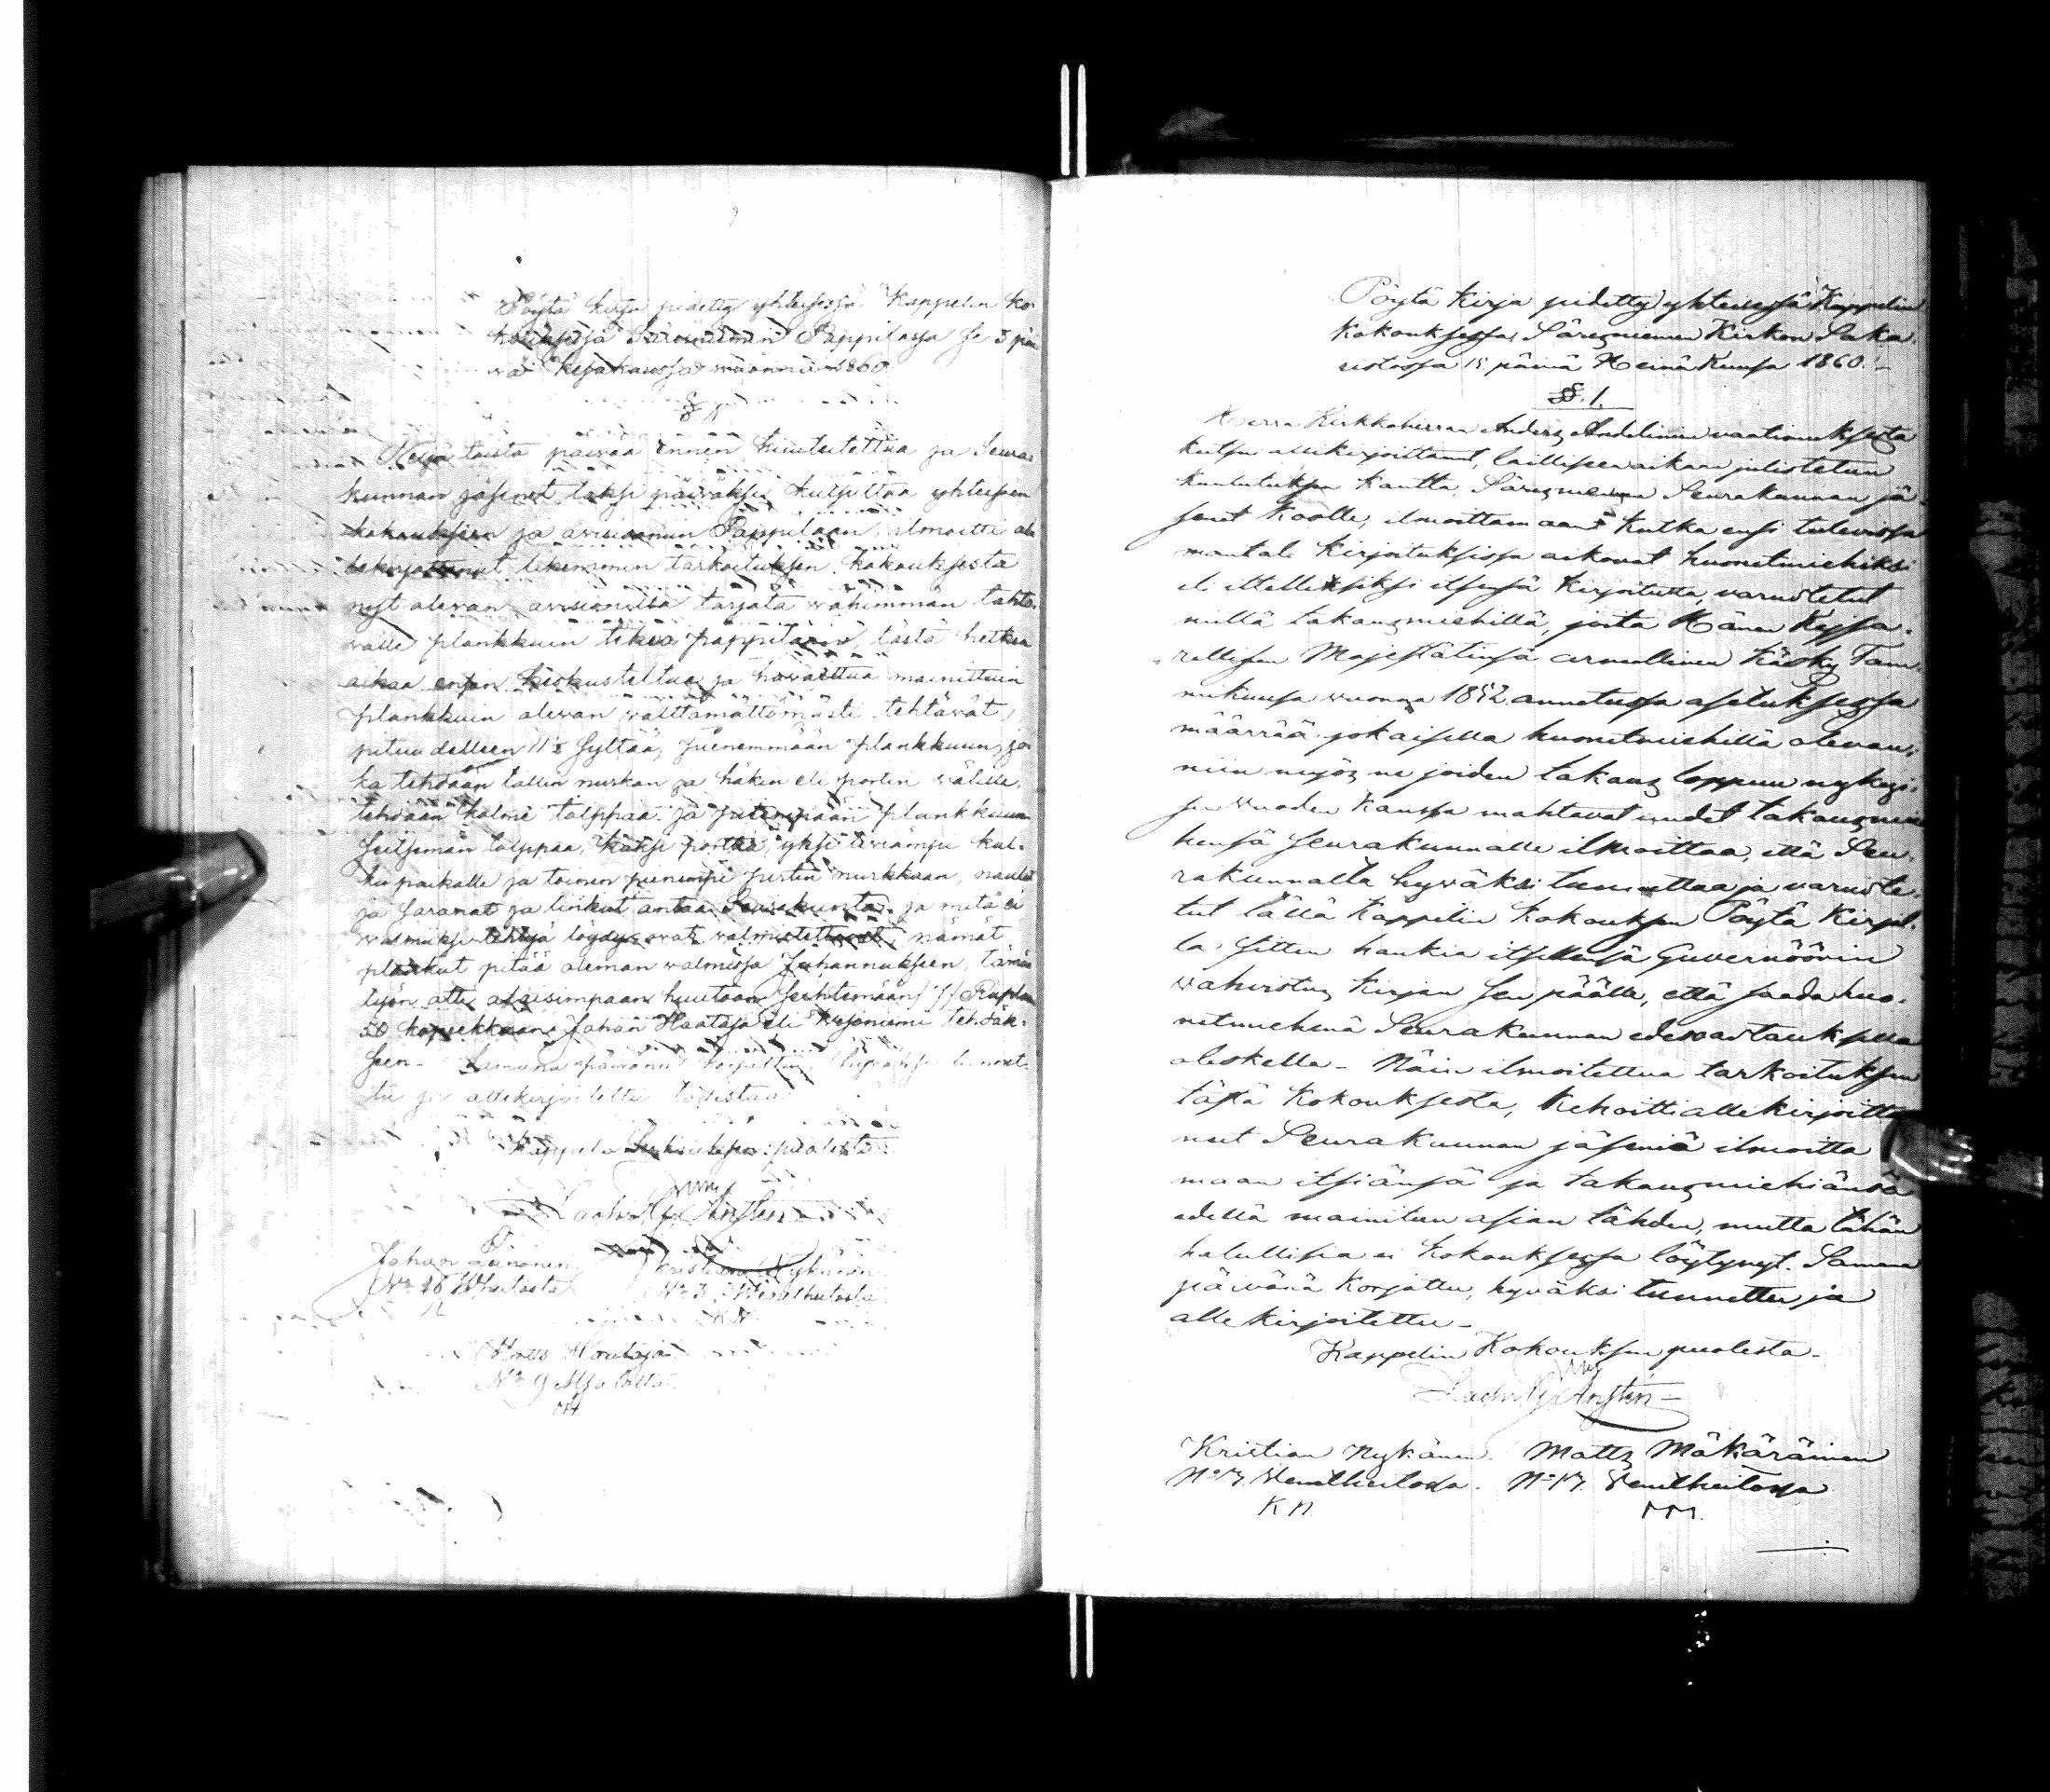 Pöytä kirja pidetty yhteisessä Kappelin Ko-
kouksessa Säresniemen Pappilassa se 3 päi
wä Kesäkuussa wuonna 1860
§ 1
Neljä toista päiwää ennen kuulutettua ja Seura-
kunnan jäsenet täksi päiwäksi kutsuttua yhteiseen
kokoukseen ja Pappilaan, ilmoitti alle
kirjoittanut likemmin tarkoituksen kokouksesta
nyt olewan tarjota wähimmän tahto-
walle plankkuin tekeo pappilaan, tästä hetken
aikaa enson keskusteltua ja hawaittua mainittuin
plankkuin olewan wälttämättömästi tehtäwät,
pituudelleen 11½ syltää, pienemmään plankkuun, jo-
ka tehdään tallin nurkan ja häkin eli portin wälille,
tehdään kolme tolppaa ja plankkuun
seitsemän tolppaa, kaksi porttia, yksi kul-
ku paikalle ja toinen pienempi nurkkaan, naulat
ja saranat ja linkut antaa Seurakunta, ja mitä ei
walmiiksi tehtyä löydy owat walmistettawat, nämät
plankut pitää oleman walmissa Juhannukseen, tämän
työn otti alaisimpaan huutoon Ruplan
50 kopekkaan Johan Haataja eli Wesoniemi tehdäk-
seen. Samana päiwänä korjattu, hywäksi tunnet-
tu ja allekirjoitettu todistaa
Kappelin Kokouksen puolesta
Johan Leinonen Kristian Nykänen
No 16 No 3 Wenetheitosta
K N
Mats Haataja
No 9
MH
Pöytä Kirja pidetty yhteisessä Kappelin
Kokouksessa, Säresniemen Kirkon Saka-
ristossa 15 päinä Heinä Kuusa 1860.
§. 1.
Herra Kirkkoherran Anders Andelinin waatimuksesta
kutsui allekirjoittanut, laillisen aikan julistetun
kuulutuksen kautta, Säresniemen Seurakunnan jä-
senet Koolle, ilmoittamaan kutka ensi tulewissa
mantali kirjoituksissa aikowat huonetmiehiksi
eli ittelliksiksi itsensä kirjoitutta, warustetut
niillä takausmiehillä, joita Hänen Keisa-
rallisen Majestätinsä armollinen käsky Tam-
mikuusa wuonna 1852 annetussa asetuksessa
määrrää jokaisella huonetmiehillä olewan;
niin myös ne joiden takaus loppuu nykyi-
sen wuoden kanssa mahtawat uudet takausmie
hensä seurakunnalle ilmoittaa, että Seu-
rakunnalta hywäksi tunnettaa ja waruste-
tut tällä Kappelin Kokouksen Pöytä Kirjal-
la, sitten hankia itsellensä Guvernöörin
wahwistus kirjan sen päälle, että saada huo-
netmiehenä Seurakunnan edeswastauksella
oleskella - Näin ilmoitettua tarkoituksen
tästä Kokouksesta, Kehoitti allekirjoitta
nut Seurakunnan jäseniä ilmoitta
maan itsiänsä ja takausmiehiänsä
edellä mainitun asian tähden, mutta tähän
halullisia ei Kokouksessa löytynyt. Samana
päiwänä Korjattu, hywäksi tunnettu ja
alle kirjoitettu -
Kappelin Kokouksen puolesta -
Kristian Nykänen. Matts Mäkäräinen
No 3 Wenetheitossa. No 17. Wenetheitossa
K N. MM.